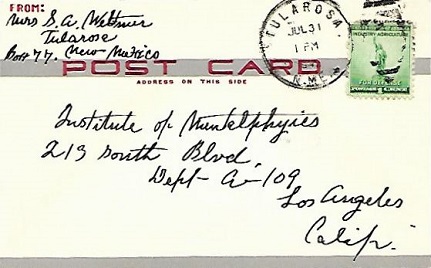 FROM:
Mrs S. A. Weltmer
Tularose
Box 77. New Mexico
TULAROSA.
JUL 31
1 PM
N. MEX.
INDUSTRY AGRICULTURE
FOR DEFENSE
1 CENT
POST CARD
ADDRESS ON THIS SIDE
Institute of Mentalphysics
213 South Blvd.
Dept- A-109
Los Angeles
Calif.